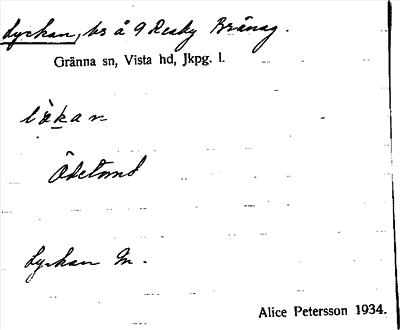 Lyckan, hs å 9 Reaby Brånag.
Gränna sn, Vista hd, Jkpg. l.
lỳkan
Ödetomt
Lyckan m.
Alice Petersson 1934.